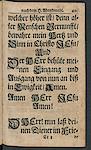 nach dem H. Abendmahl.
welcher höher ist/ denn al-
ler Menschen Vernunfft/
bewahre mein Hertz und
Sinn in Christo JEsu/
Amen!
Der HErr behüte mei-
nen Eingang und
Ausgang von nun an biß
in Ewigkeit/ Amen.
Amen HErr JEsu
Amen!
HErr! nun laß dei-
nen Diener im Frie-